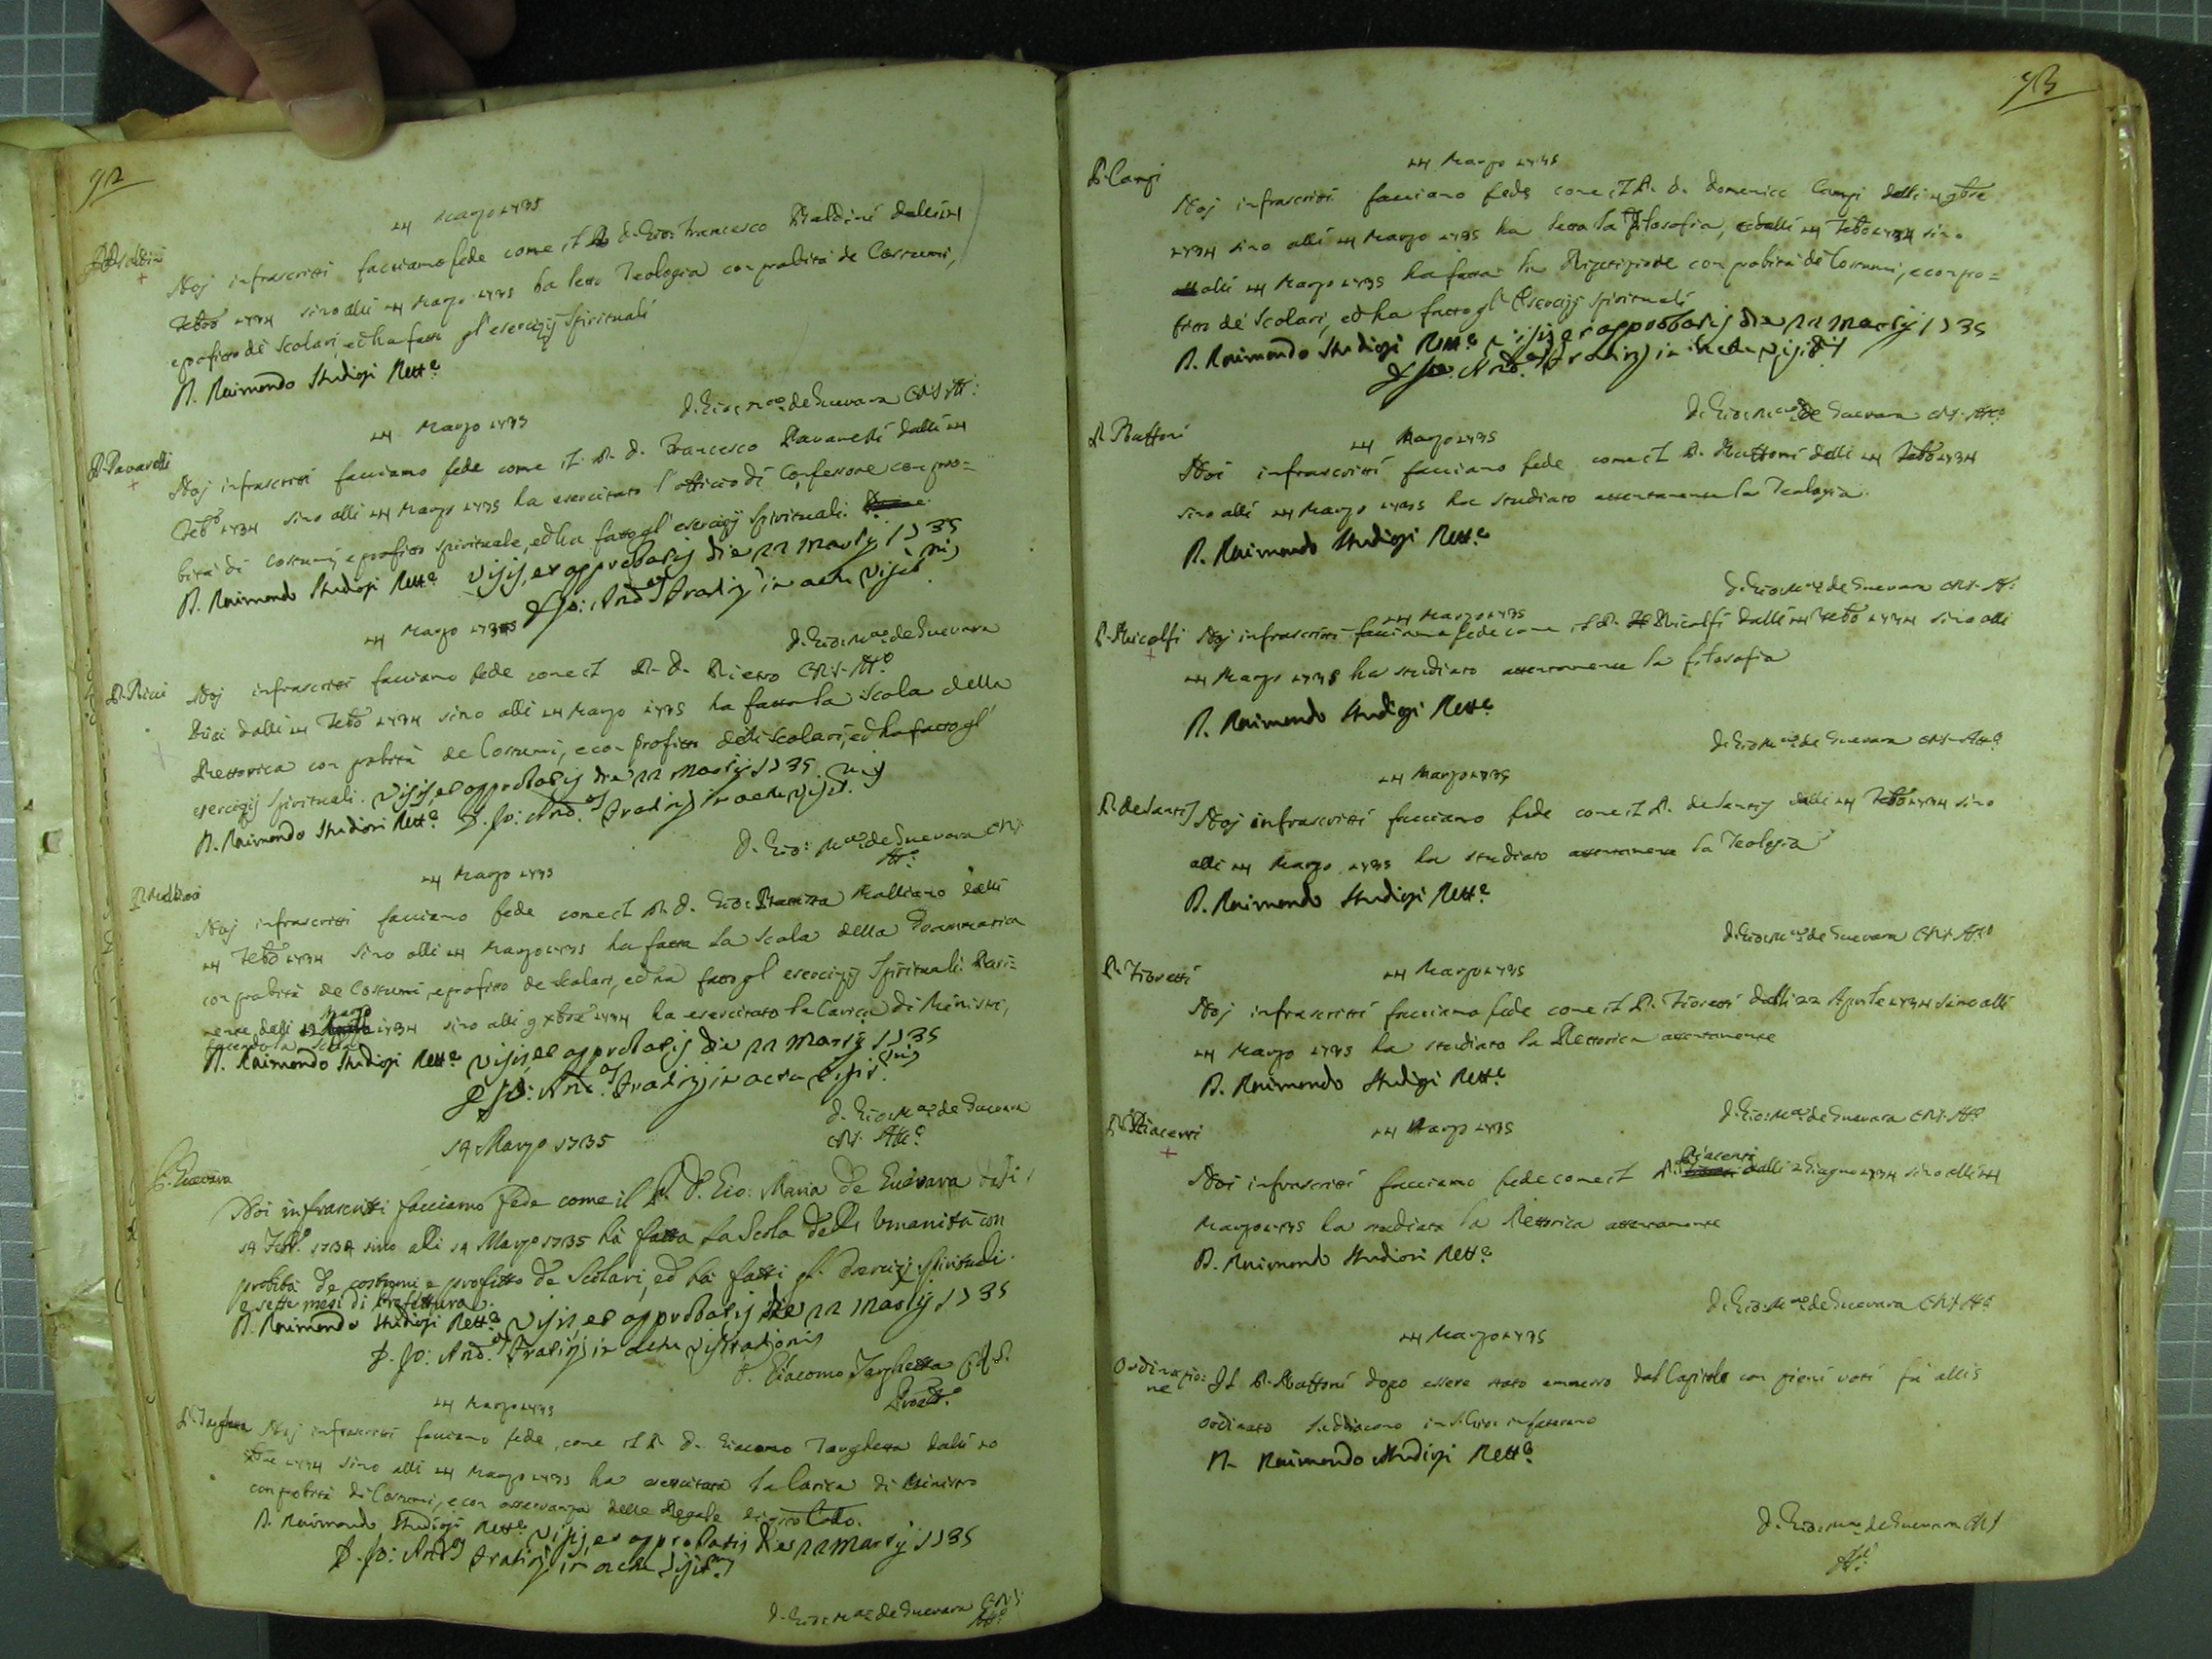 92
14 Marzo 1735
P. Baldini
Noj infrascritti facciamo fede come il P. D. Gio: Francesco Baldini dalli 14
Febro 1734 sino alli 14 Marzo 1735 ha letto Teologia con probità de Costumi,
e profitto dè Scolari, ed ha fatti gl'esercizij Spirituali
D. Raimondo Studiosi Rett.e
D. Gio: M.a de Guevara CRS. Att.o
14 Marzo 1735
P. Pavarelli
Noj infrascritti facciamo fede come il P. D. Francesco Pavarelli dalli 14
Feb.o 1734 sino alli 14 Marzo 1735 ha esercitato l'officio di Confessore con pro=
bità di Costumi, e profitto spirituale, ed ha fatto gl'esercizij Spirituali.
D. Raimondo Studiosi Rett.e Visis, et approbatis die 22 Martij 1735
D. Jo: And. Stratis in actu Visit.nis
D. Gio: M.a de Guevara
CRS. Att.o
14 Marzo 1735
P. Rici
Noj infrascritti facciamo fede come il P. D. Pietro
Rici dalli 14 Febo 1734 sino alli 14 Marzo 1735 ha fatto la Scola della
Rettorica con probità de Costumi, e con profitto delli Scolari, ed ha fatto gl'
esercizij Spirituali. Visis, et approbatis die 22 Martij 1735
D. Raimondo Studiosi Rett.e D. Jo: And. Stratis in actu Visit.nis
D. Gio: M.a de Guevara CRS
Att.o
14 Marzo 1735
P. Malliani
Noj infrascritti facciamo fede come il P. D. Gio: Battista Malliano dalli
14 Febo 1734 sino alli 14 Marzo 1735 ha fatta la Scola della Grammatica
con probità de Costumi, e profitto de Scolari, ed ha fatto gl'esercizij Spirituali. Pari=
mente dalli Marzo 1734 sino alli 9 xbre 1734 ha esercitato la Carica di Ministro,
facendo la Scola
D. Raimondo Studiosi Rett.e Visis, et approbatis die 22 Martij 1735
D. Jo: And. Stratis in actu Visit.nis
D. Gio: M.a de Guevara
CRS. Att.o
14 Marzo 1735
P. Guevara
Noi infrascritti facciamo fede come il P. D. Gio: Maria de Guevara dalli
14 Febr.o 1734 sino alli 14 Marzo 1735 hà fatta la Scola della Umanità con
probità de costumi e profitto de Scolari, ed hà fatti gl'Esercizj Spirituali.
e sette mesi di Prefettura.
D. Raimondo Studiosi Rett.e Visis, et approbatis die 22 Martij 1735
D. Jo: And. Stratis in actu Visitationis
D. Giacomo Targhetta CRS.
Proatt.o
14 Marzo 1735
P. Targhetta Noj infrascritti facciamo fede, come il P. D. Giacomo Targhetta dalli 10
xbre 1734 sino alli 14 Marzo 1735 ha esercitata la Carica di Ministro
con probità di Costumi, e con osservanza delle Regole
D. Raimondo Studiosi Rett.e Visis, et approbatis die 22 Martij 1735
D. Jo: And. Stratis in actu Visit.nis
D. Gio: M.a de Guevara CRS
Att.o
93
14 Marzo 1735
P. Campi
Noj infrascritti facciamo fede come il P. D. Domenico Campi dalli 4 9bre
1734 sino alli 14 Marzo 1735 ha letta la Filosofia, e dalli 14 Febo 1734 sino
alli 14 Marzo 1735 ha fatta la Ripetizione con probità dè Costumi, e con pro=
fitto dè Scolari, ed ha fatto gl'Esercizij Spirituali
D. Raimondo Studiosi Rett.e Visis, et approbatis die 22 Martij 1735
D. Jo: And. Stratis in actu Visit.
D. Gio: M.a de Guevara CRS. Att.o
P. Buttoni
14 Marzo 1735
Noi infrascritti facciamo fede come il P. Buttoni dalli 14 Febo 1734
sino alli 14 Marzo 1735 ha studiato attentamente la Teologia.
D. Raimondo Studiosi Rett.e
D. Gio: M.a de Guevara CRS. Att.
14 Marzo 1735
P. Ricolfi Noj infrascritti facciamo fede come il P. Ricolfi dalli 14 Febo 1734 sino alli
14 Marzo 1735 ha studiato attentamente la filosofia
D. Raimondo Studiosi Rett.e
D. Gio: M.a de Guevara CRS. Att.o
14 Marzo 1735
P. de Santis Noj infrascritti facciamo fede come il P. de Santis dalli 14 Febo 1734 sino
alli 14 Marzo 1735 ha studiato attentamente la Teologia
D. Raimondo Studiosi Rett.e
D. Gio: M.a de Guevara CRS. Att.o
P. Fioretti
14 Marzo 1735
Noj infrascritti facciamo fede come il P. Fioretti dalli 22 Aprile 1734 sino alli
14 Marzo 1735 ha studiato la Rettorica attentamente
D. Raimondo Studiosi Rett.e
D. Gio: M.a de Guevara CRS. Att.o
P. Piacenti
14 Marzo 1735
Noi infrascritti facciamo fede come il P. Piacenti dalli 2 Giugno 1734 sino alli 14
Marzo 1735 ha studiata la Rettorica attentamente
D. Raimondo Studiosi Rett.e
D. Gio: M.a de Guevara CRS. Att.o
14 Marzo 1735
Ordinazio=
ne
Il P. Buttoni dopo essere stato ammesso dal Capitolo con pieni voti fù alli 5
ordinato Suddiacono in S. Gio: in Laterano
D. Raimondo Studiosi Rett.e
D. Gio: M.a de Guevara CRS
Att.o